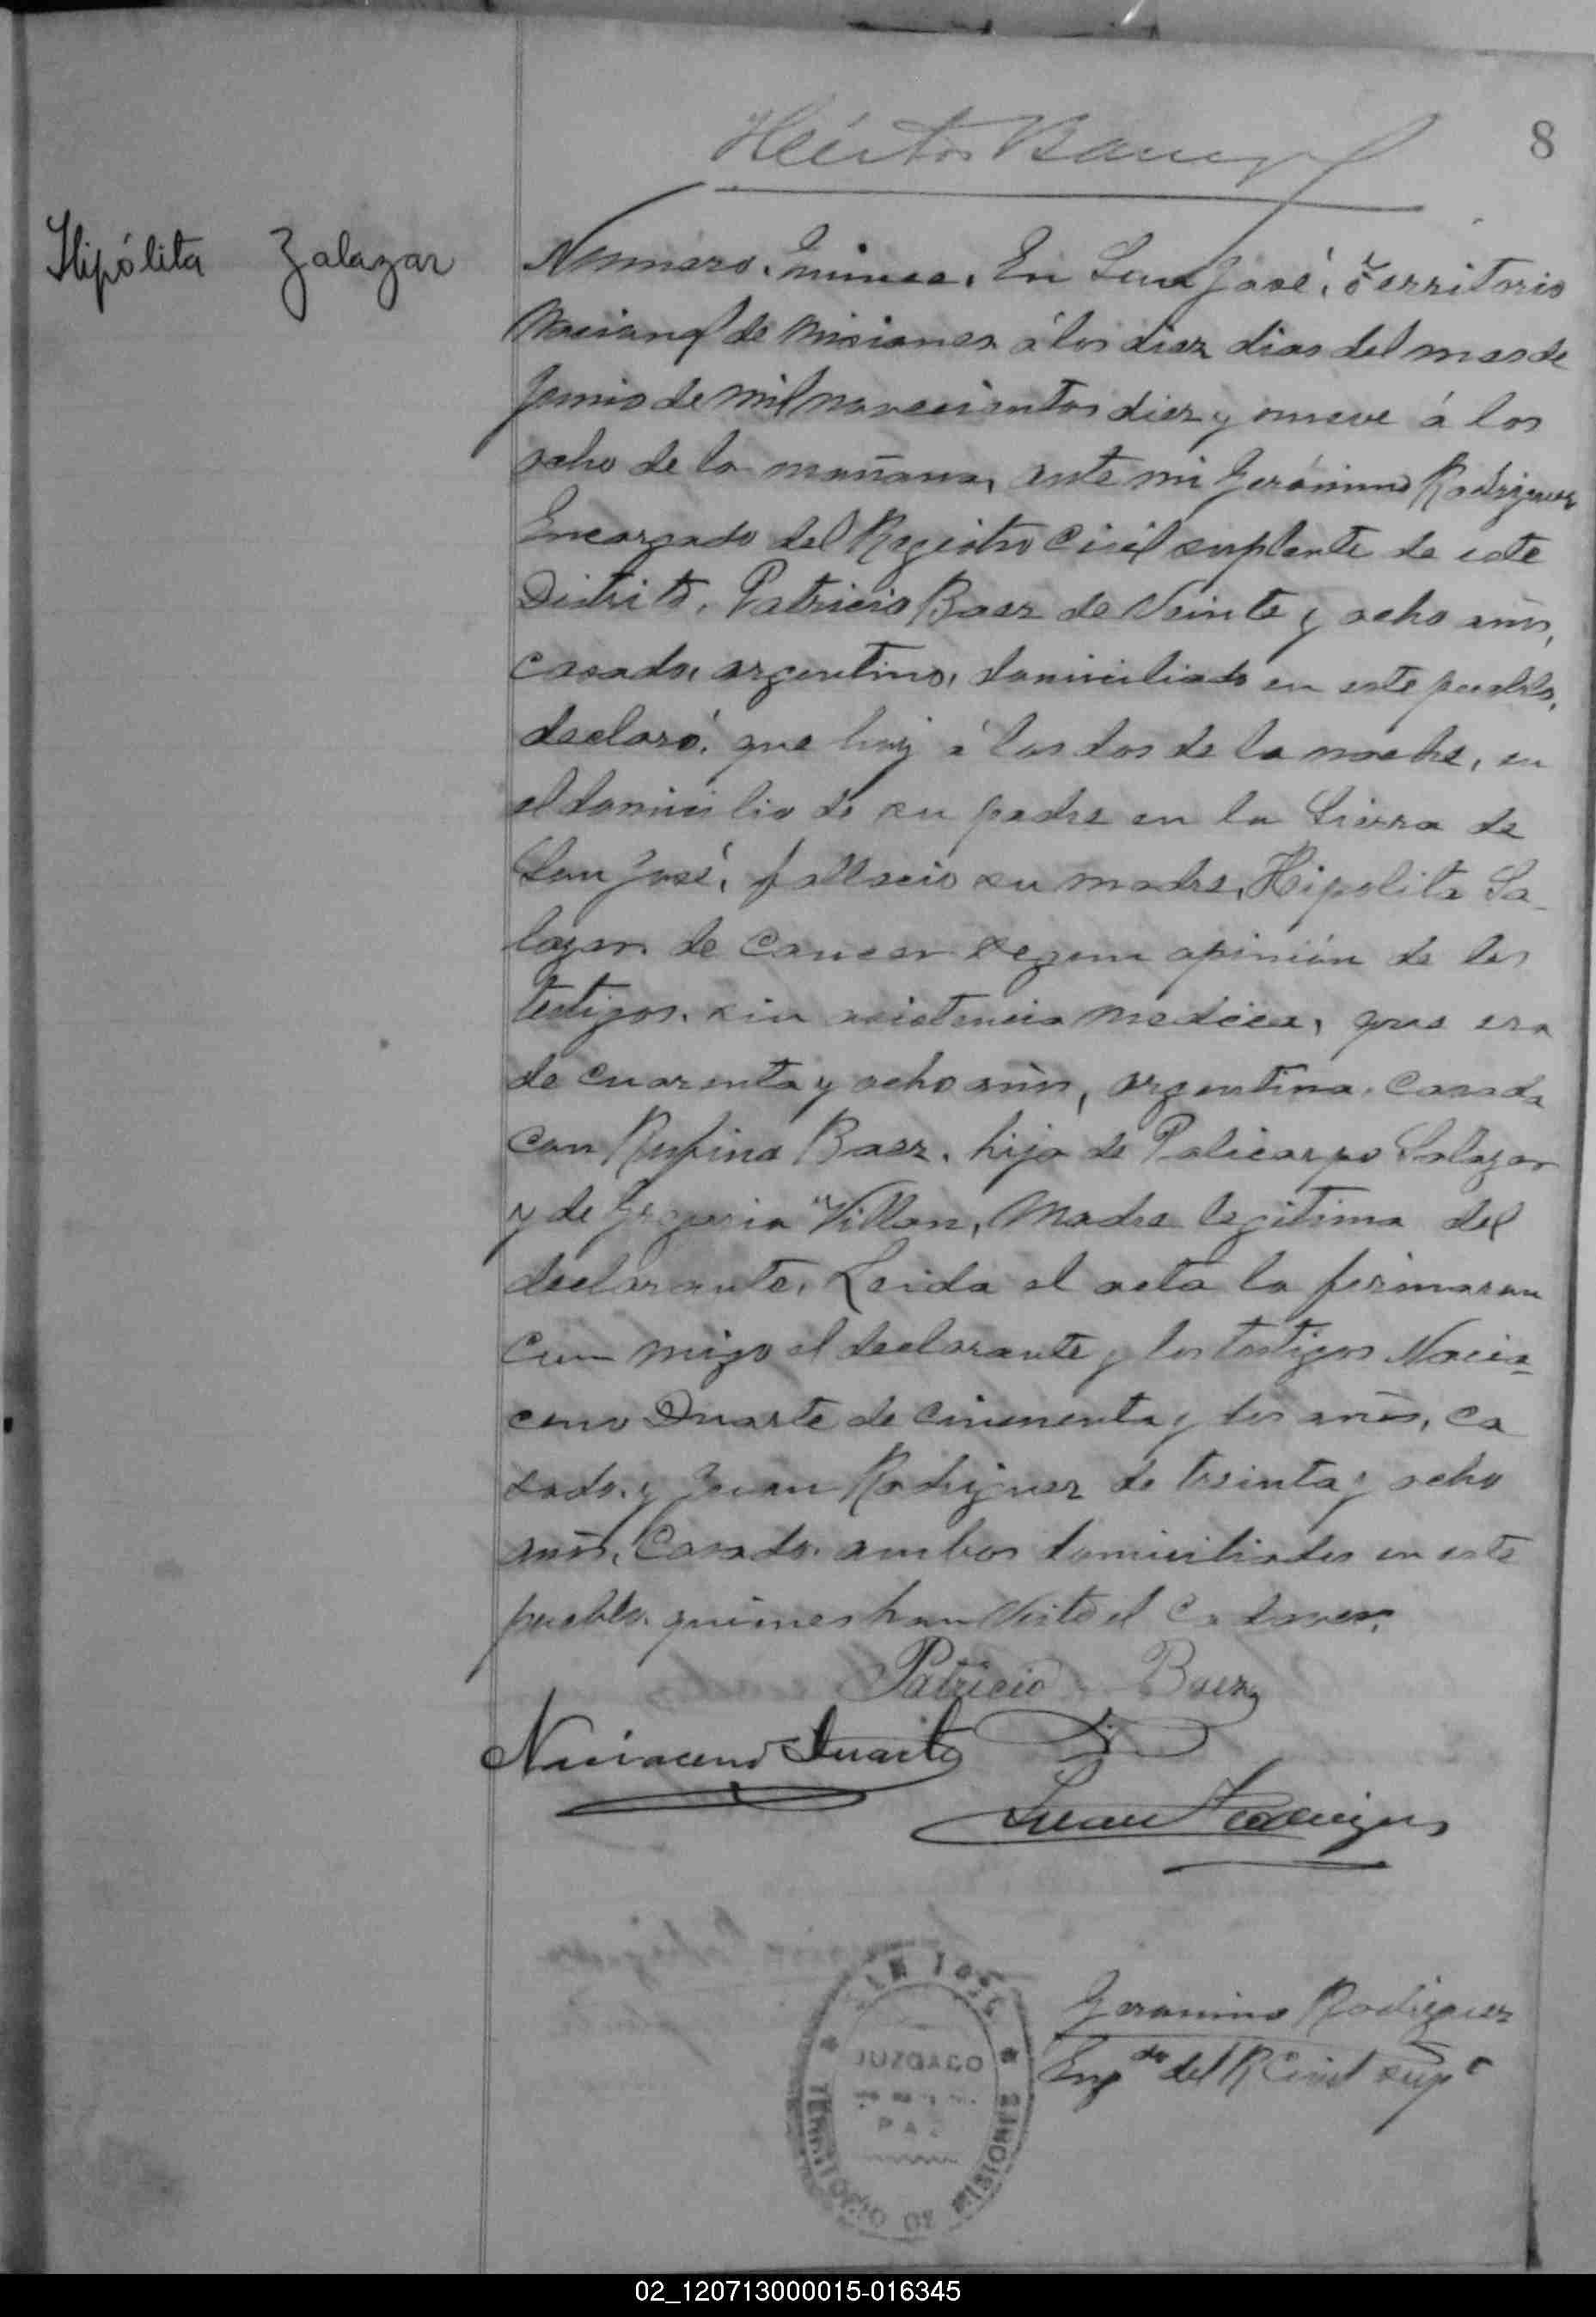 8
Hipólita Zalazar
Numero quince. En San José, territorio
Nacional de Misiones á los diez dias del mes de
Junio de mil novecientos diez y nueve á las
ocho de la mañana, ante mi Gerónimo Rodriguez
Encargado del Registro Civil suplente de este
Distrito, Patricio Baez de Veinte y ocho años,
casado, argentino, domiciliado en este pueblo,
declaró: que hoy á las dos de la noche, en
el domicilio de su padre en la Sierra de
San José, fallecio su madre, Hipolita Sa-
lazar de Cancer segun opinión de los
testigos, sin asistencia medica, que era
de cuarenta y ocho años, argentina, casada
con Rufino Baez, hija de Policarpo Salazar
y de Gregoria Villan, Madre legitima del
declarante. Leida el acta la firmaron
con migo el declarante y los testigos Nacia=
ceno Duarte de cincuenta y dos años, ca
sado, y Juan Rodriguez de treinta y ocho
años, Casado, ambos domiciliados en este
pueblo, quienes han visto el Cadaver.
Patricio Baez
Naciaceno Duarte
Juan Rodriguez
SAN JOSE
JUZGADO
PAZ
TERRITORIO DE MISIONES
Geronimo Rodriguez
Eng do del R Civil sup e
02_120713000015-016345